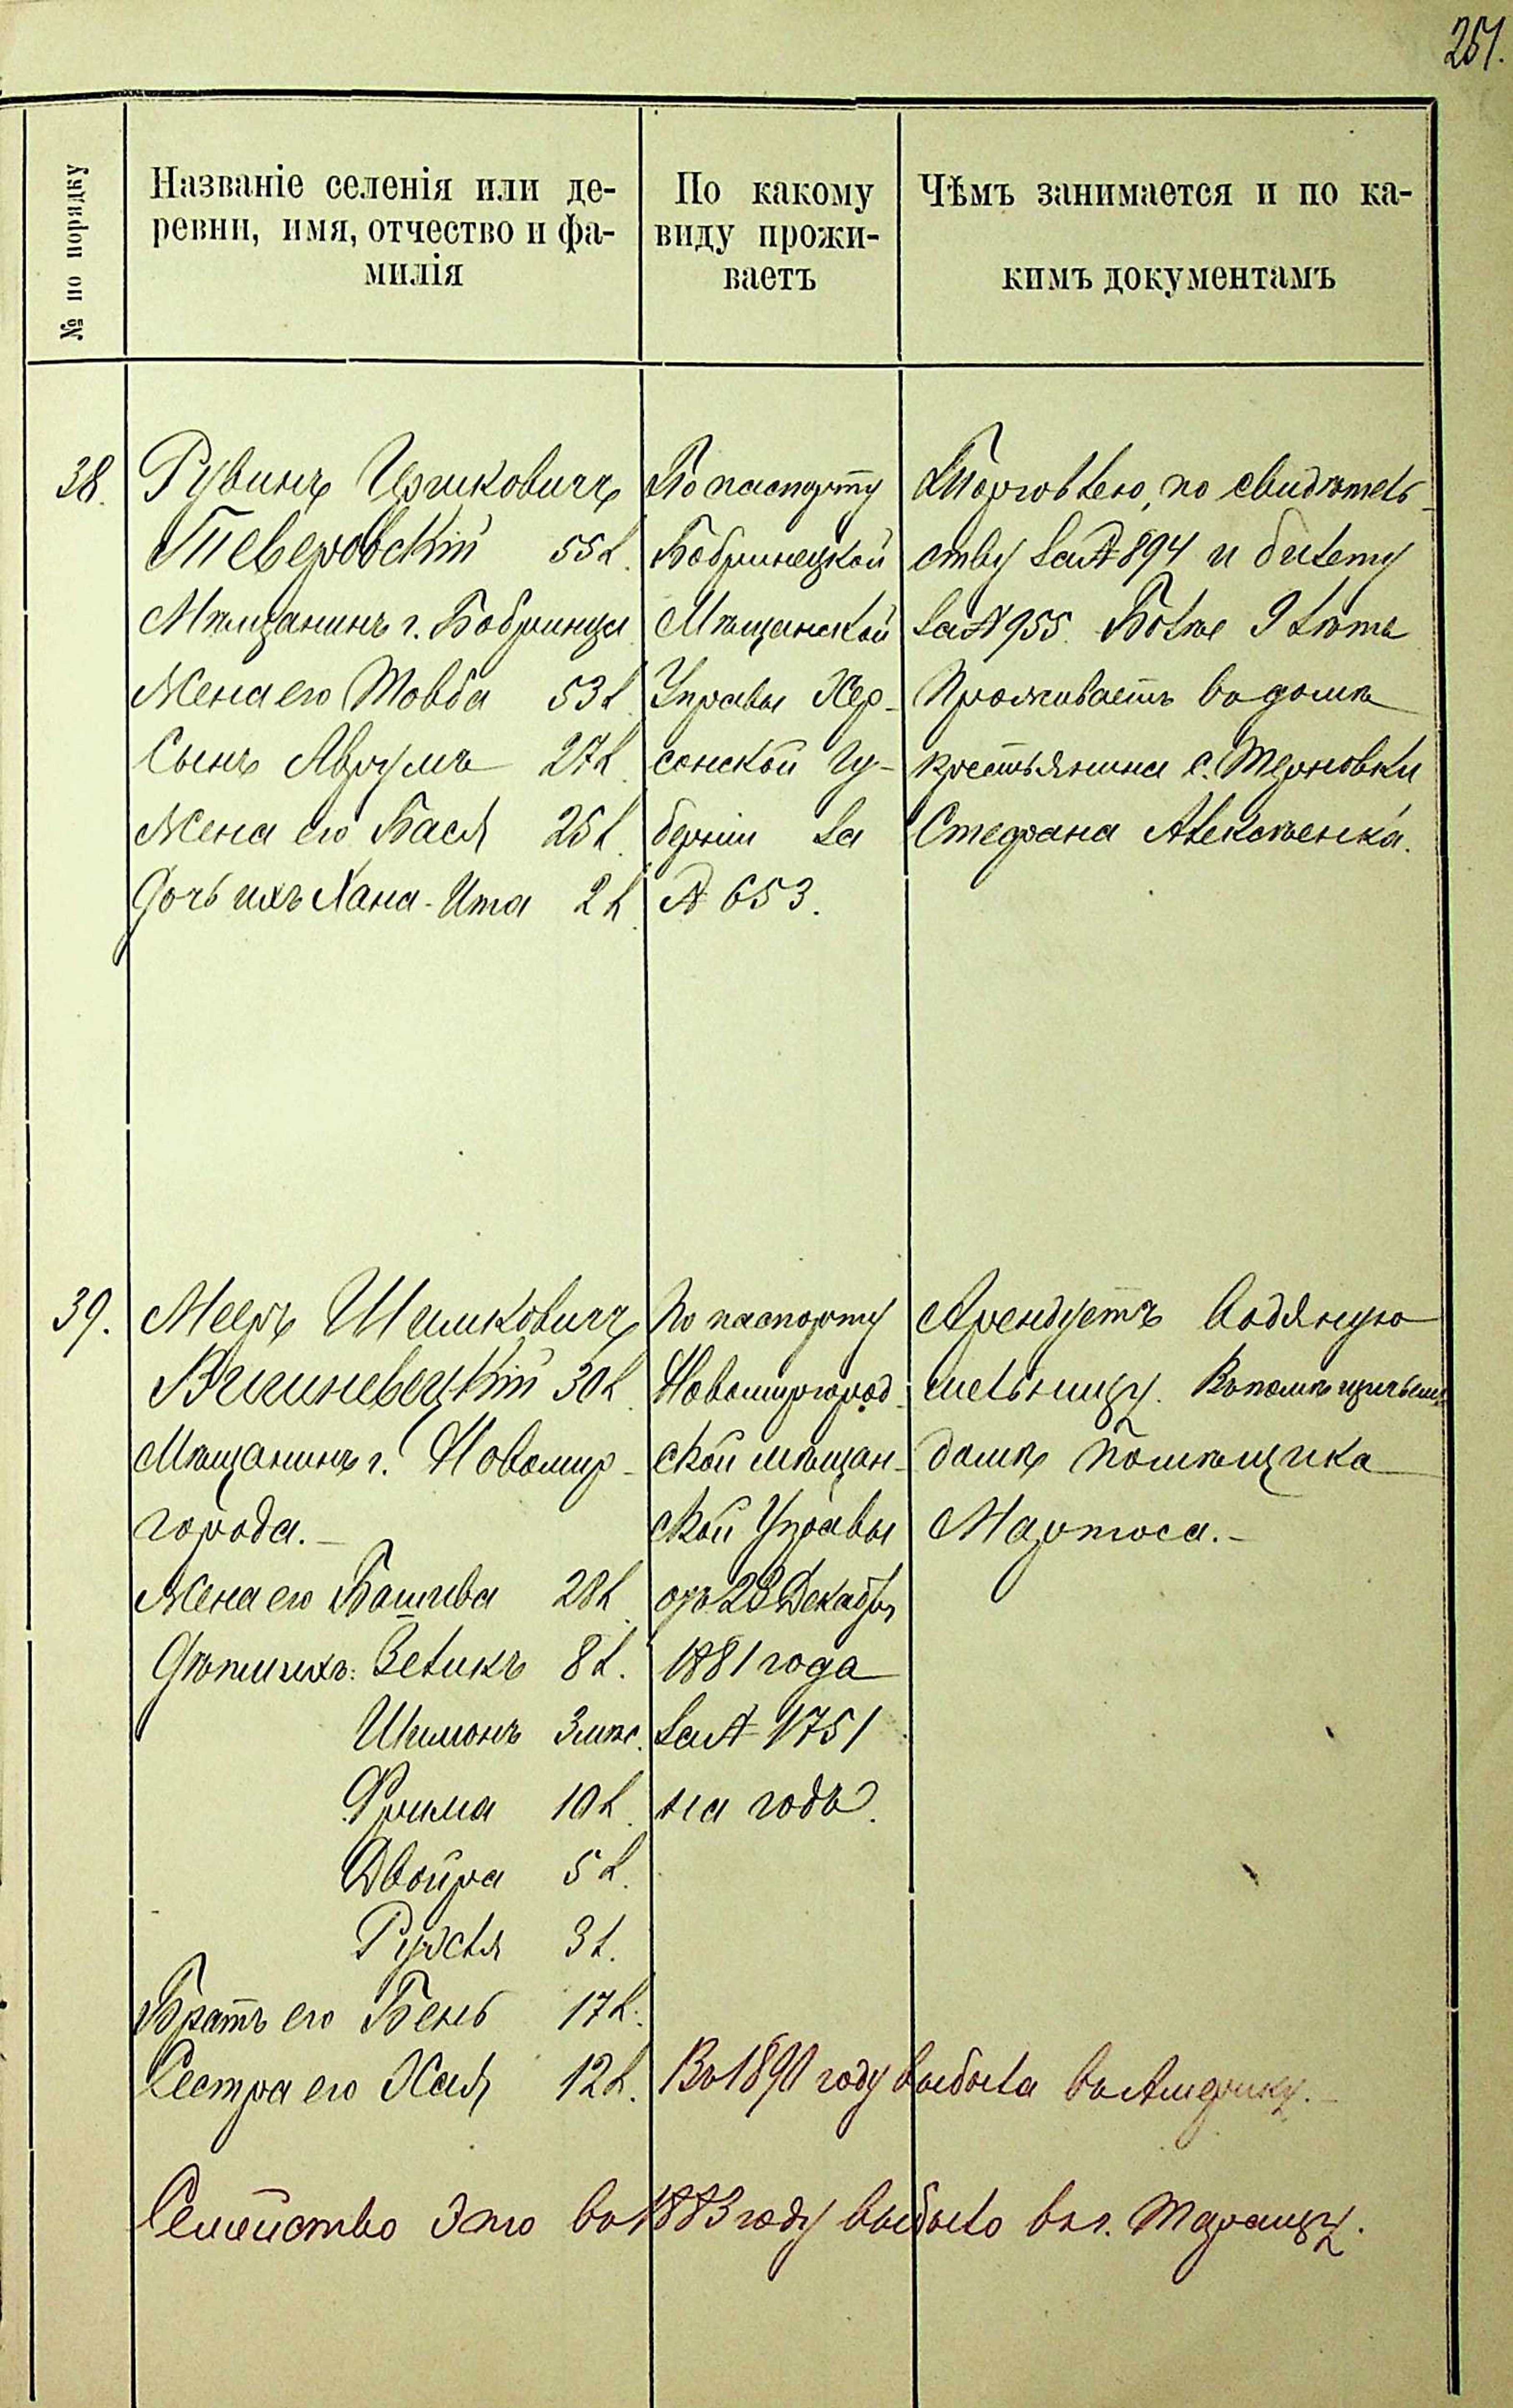 251.
№ по порядку
Названіе селенія или де-
ревни, имя, отчество и фа-
милія
По какому
виду прожи-
ваетъ
Чѣмъ занимается и по ка-
кимъ документамъ
38.
Рувинъ Ицковичъ
Теверовскій 55 л.
Мѣщанинъ г. Бобринца
Жена его Товба 53 л.
Сынъ Аврумъ 27 л.
Жена его Бася 25 л.
Дочь ихъ Хана-Ита 2 л.
По паспорту
Бобринецкой
Мѣщанской
Управы Хер-
сонской Гу-
берніи за
№ 653.
Торговлею, по свидѣтель-
ству за № 894 и билету
за № 955. Болѣе 9 лѣтъ
Проживаетъ въ домѣ
крестьянина с. Терновки
Стефана Алексѣенка.
39.
Мееръ Шимковичъ
30 л.
Мѣщанинъ г. Новомир-
города.-
Жена его Башива 28 л.
Дѣти ихъ: Зеликъ 8 л.
Шимонъ 3 мѣс.
Фрима 10 л.
Двойра 5 л.
Рухля 3 л.
Братъ его Бень 17 л.
Сестра его Хая 12 л.
По паспорту
Новомиргород-
ской мѣщан-
ской Управы
отъ 23 Декабря
1881 года
за № 1751
на годъ.
Арендуетъ водяную
мельницу. Въ
домѣ помѣщика
Мартоса.-
Въ 1890 году выбыла въ Америку.-
Семейство это въ 1883 году выбыло въ г. Таращу.